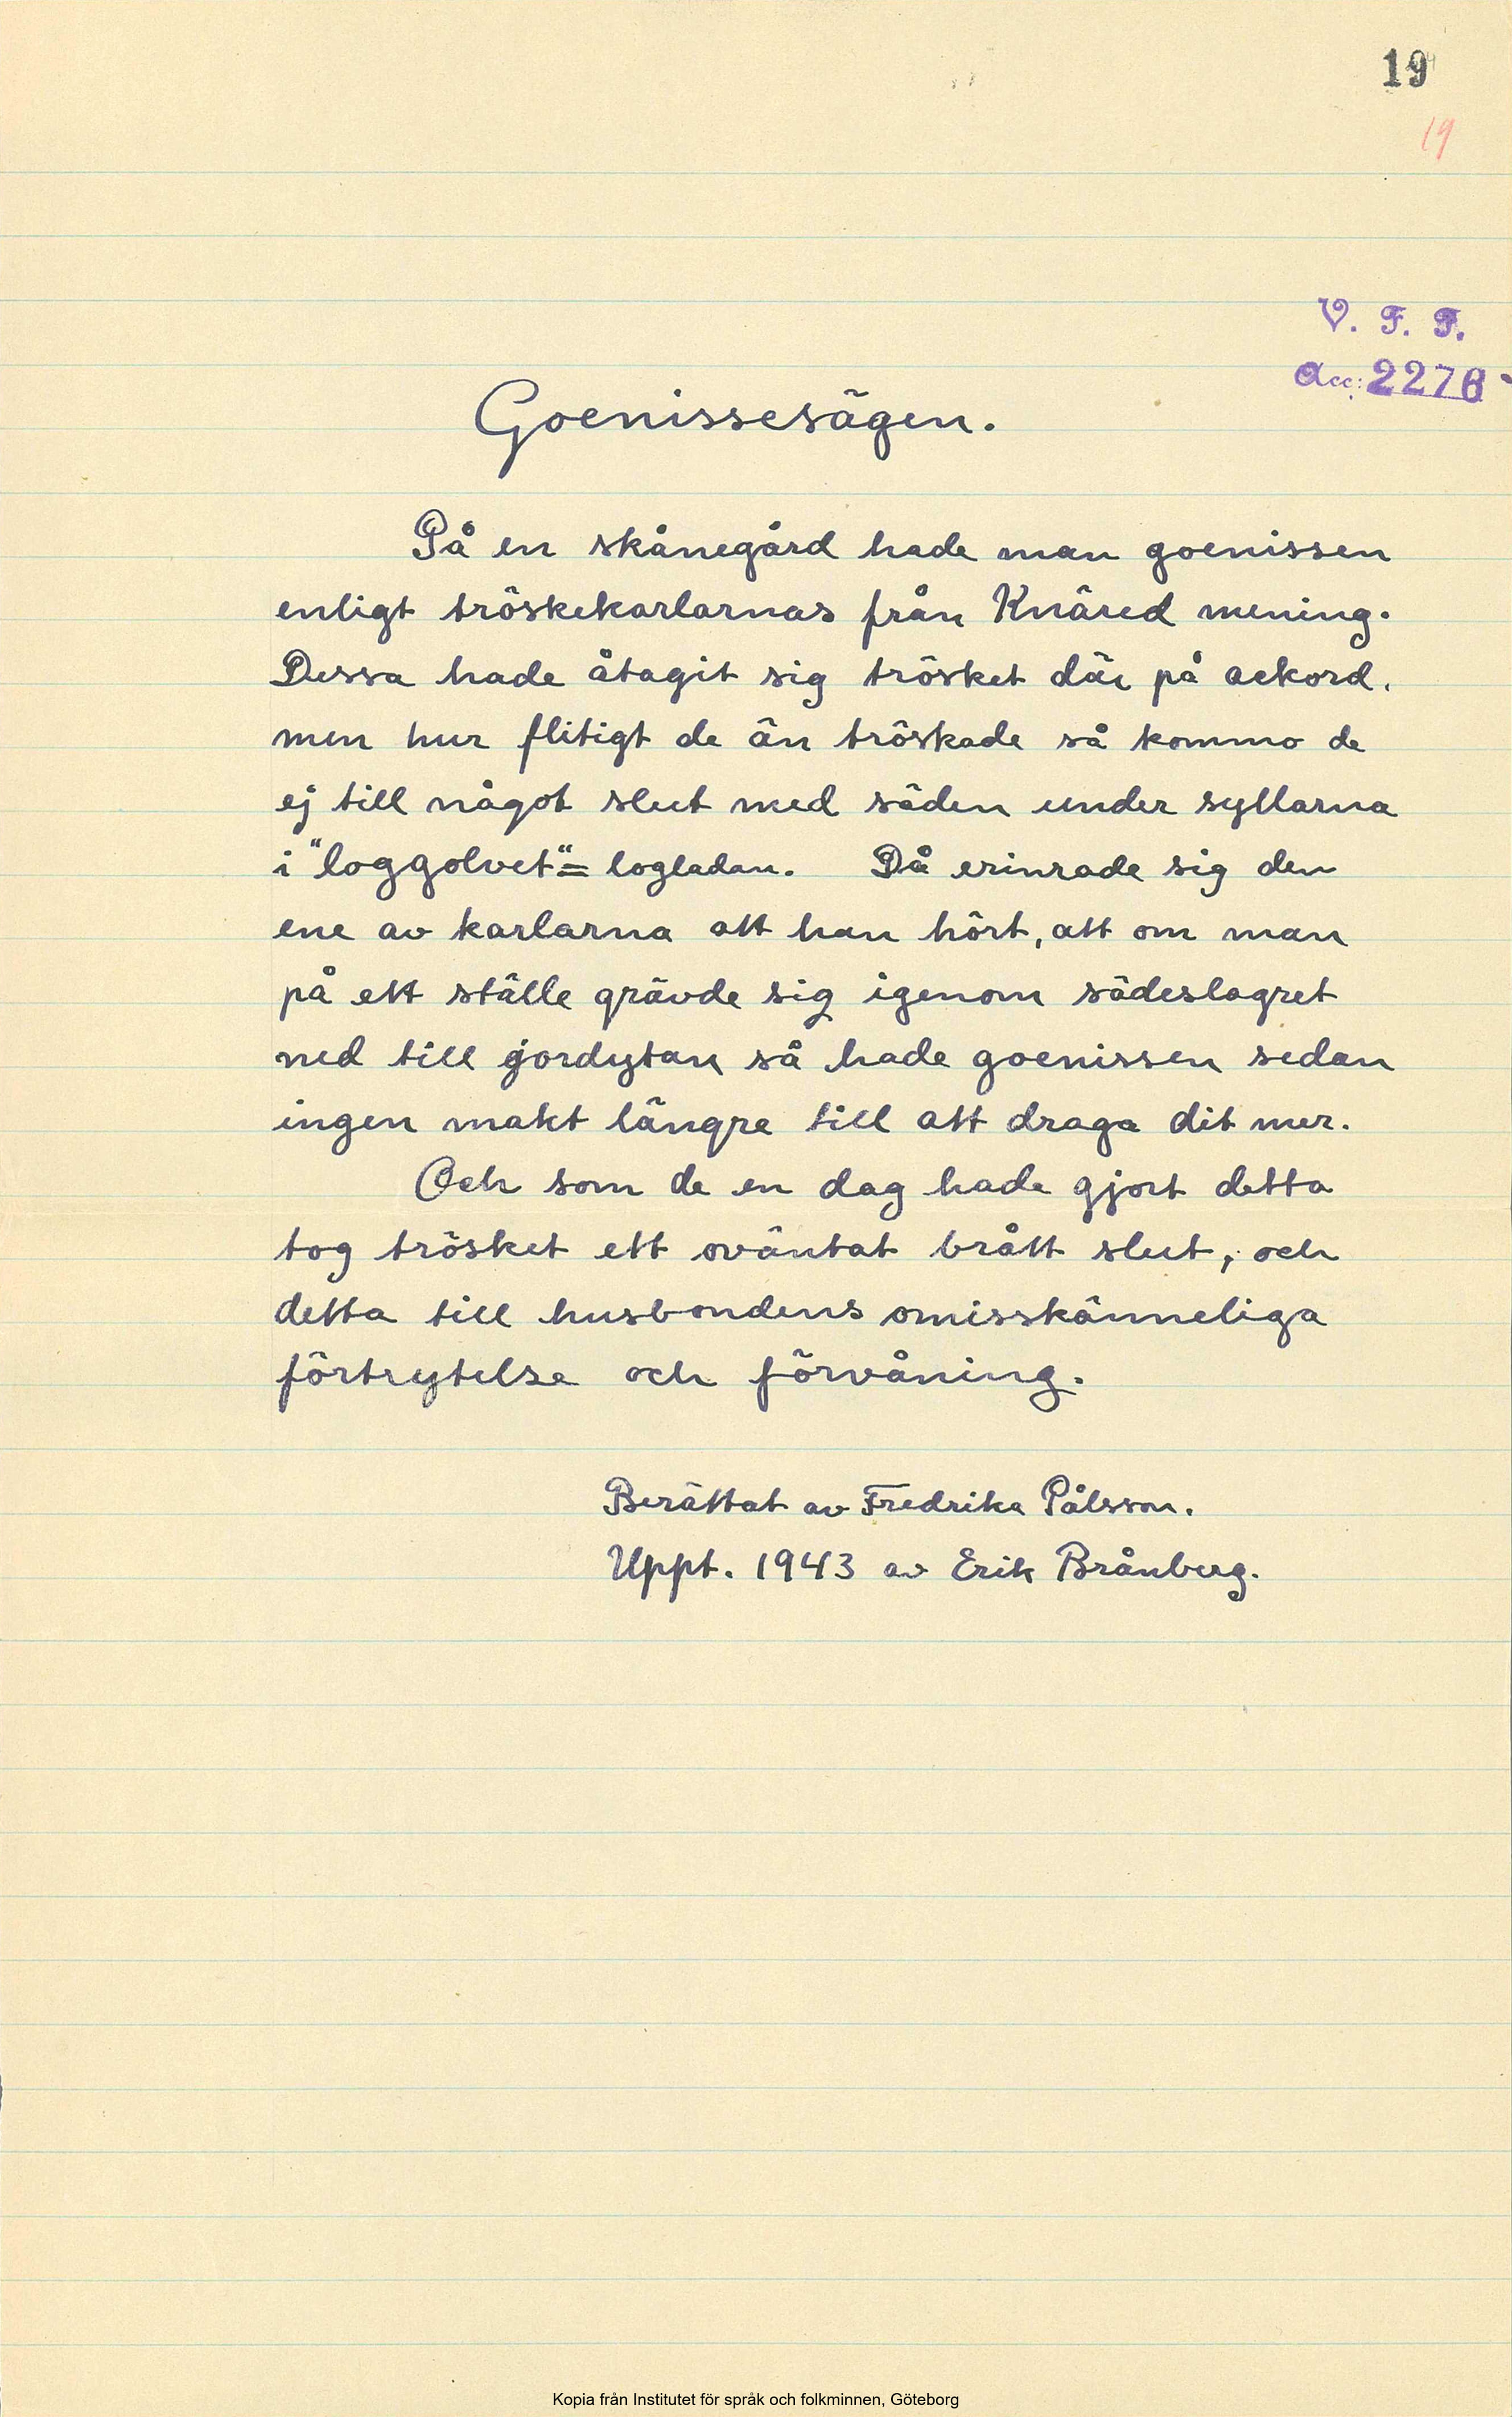 19
19
V. F. F.
Acc: 2276
Goenissesägen.
På en skånegård hade man goenissen
enligt tröskekarlarnas från Knäred mening.
Dessa hade åtagit sig trösket där på ackord.
men hur flitigt de än tröskade så kommo de
ej till något slut med säden under syllarna
i "loggolvet" = logladan. Då erinrade sig den
ene av karlarna att han hört, att om man
på ett ställe grävde sig igenom sädeslagret
ned till jordytan så hade goenissen sedan
ingen makt längre till att draga dit mer.
Och som de en dag hade gjort detta
tog trösket ett oväntat brått slut, och
detta till husbondens omisskänneliga
förtrytelse och förvåning.
Berättat av Fredrika Pålsson.
Uppt. 1943 av Erik Brånberg.
Kopia från Institutet för språk och folkminnen, Göteborg